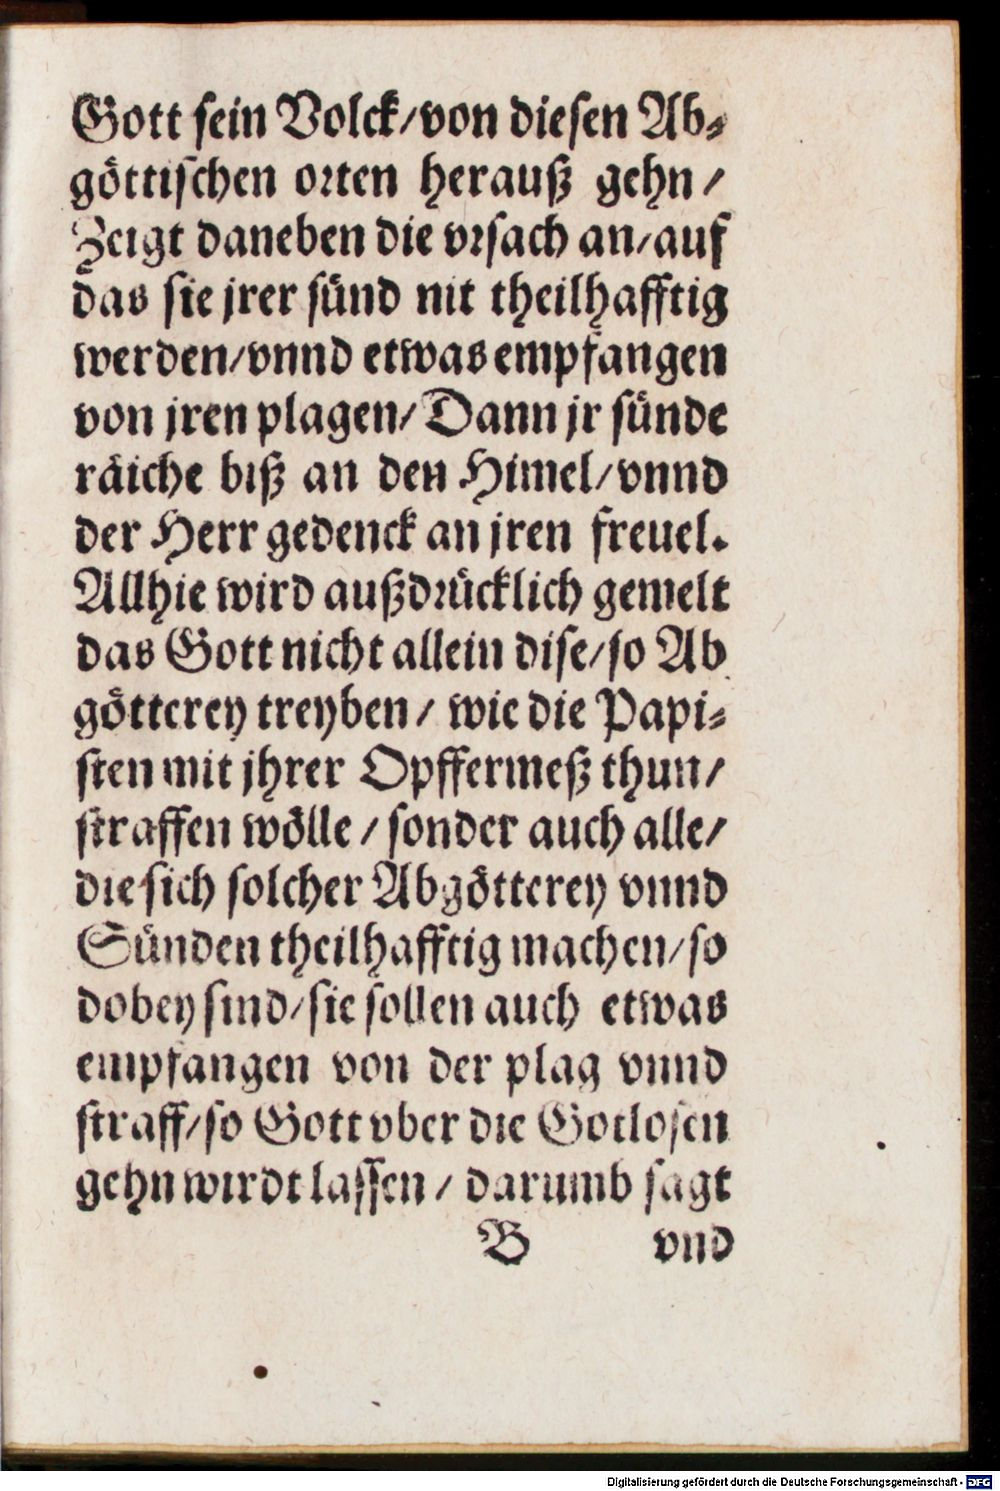 Gott sein Volck/von diesen Ab⸗
göttischen orten herauß gehn/
Zeigt daneben die vrsach an/auf
das sie jrer sünd nit theilhafftig
werden/vnnd etwas empfangen
von jren plagen/Dann jr sünde
räiche biß an den Himel/vnnd
der Herr gedenck an jren freuel.
Allhie wird außdrücklich gemelt
das Gott nicht allein dise/so Ab
götterey treyben/ wie die Papi⸗
sten mit jhrer Opffermeß thun/
straffen wölle/sonder auch alle/
die sich solcher Abgötterey vnnd
Sünden theilhafftig machen/so
dobey sind/sie sollen auch etwas
empfangen von der plag vnnd
straff/so Gott vber die Gotlosen
gehn wirdt lassen/ darumb sagt
B vnd
Digitalisierung gefördert durch die Deutsche Forschungsgemeinschaft - DFG